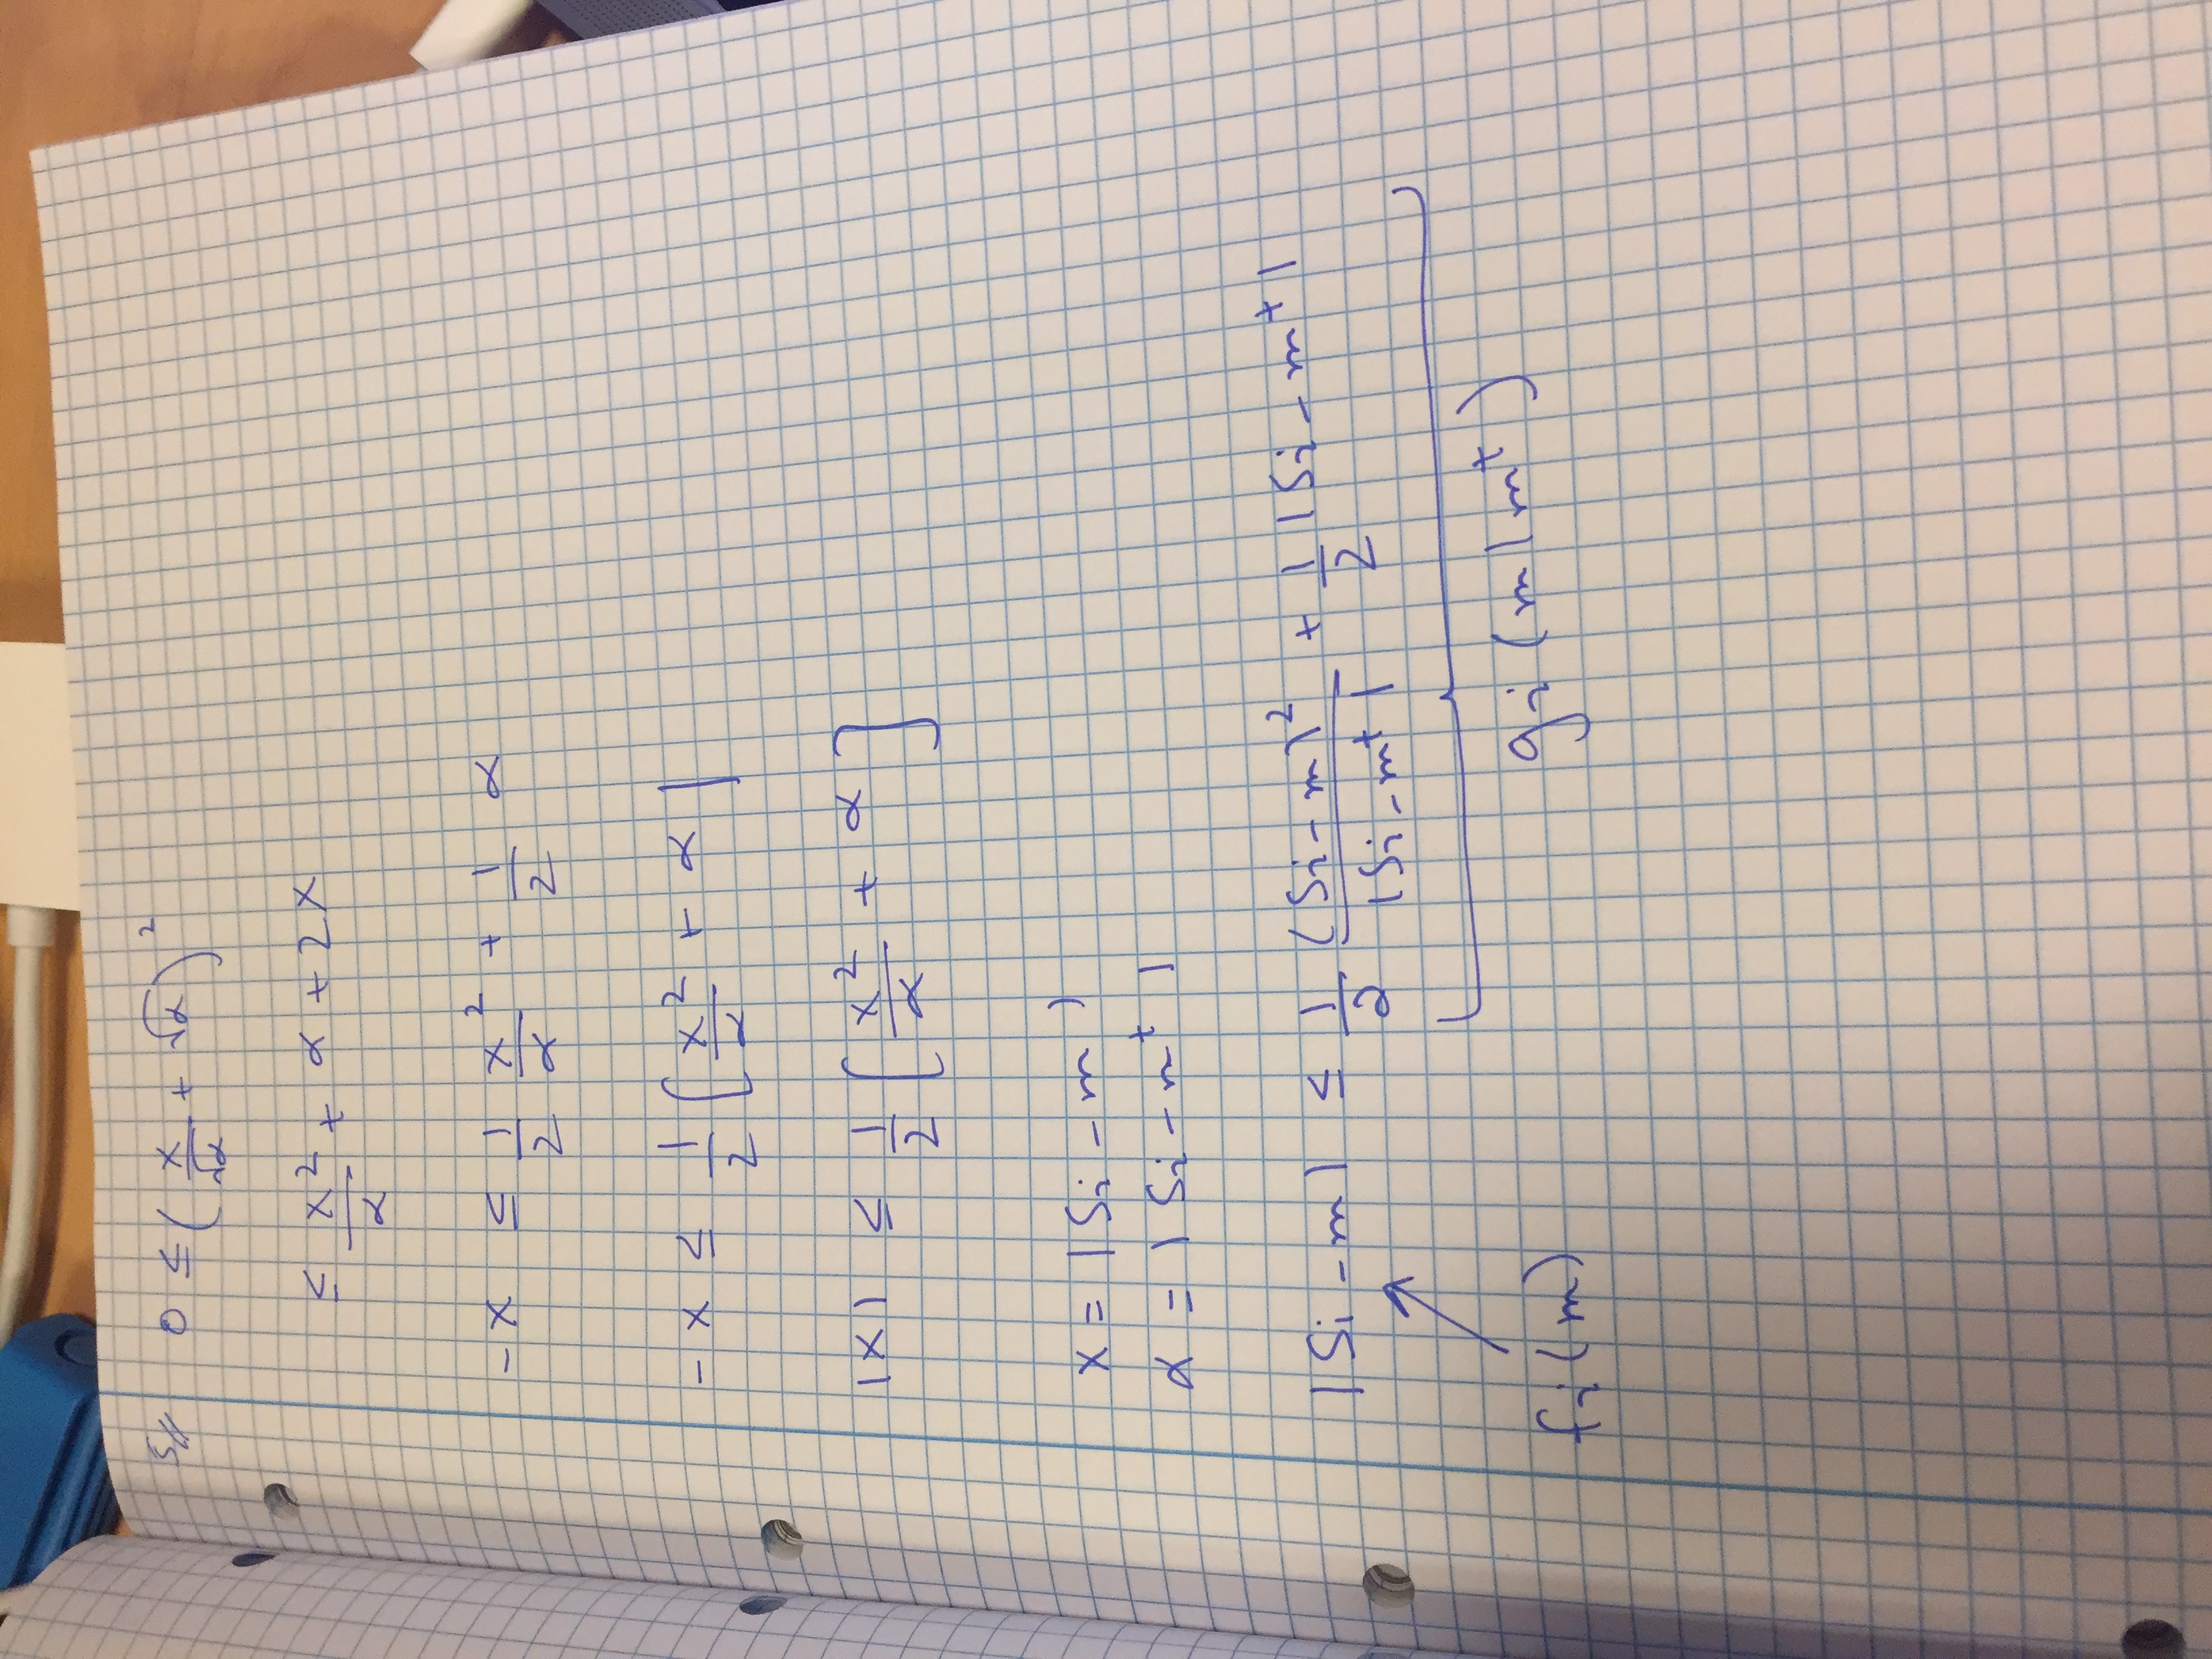 5/
0 ≤ (x/√α + √α)²
≤ x²/α + α + 2x
-x ≤ 1/2 x²/α + 1/2 α
-x ≤ 1/2 [x²/α + α]
|x| ≤ 1/2 [x²/α + α]
x = |Si - m|
α = |Si - mᵗ|
|Si - m| ≤ 1/2 (Si - m)²/|Si - mᵗ| + 1/2 |Si - mᵗ|
fi(m)
gi(m|mᵗ)